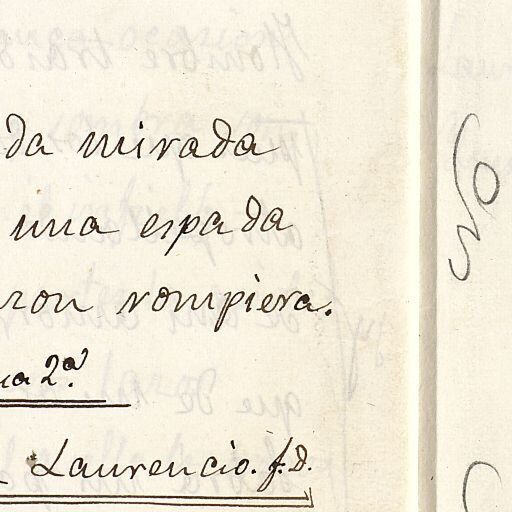 da mirada
una espada
zon rompiera.
na 2ª.
Laurencio. f. d.